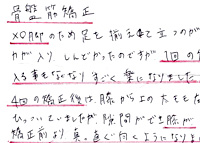 骨盤筋矯正
X O脚のため足を揃えて立つのが
力が入り しんどかったのですが 1回の
入る事もななり すごく楽になりました
4回の矯正後は、膝から上の太ももな
ひっついていましたが隙間ができ膝が
矯正前より真っ直ぐ向くようになりま